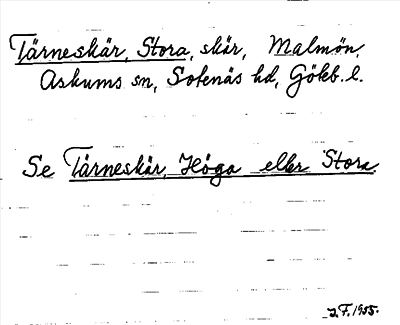 Tärneskär, Stora, skär, Malmön,
Askums sn, Sotenäs hd, Göteb. l.
Se Tärneskär, Höga eller Stora.
J.F. 1955.